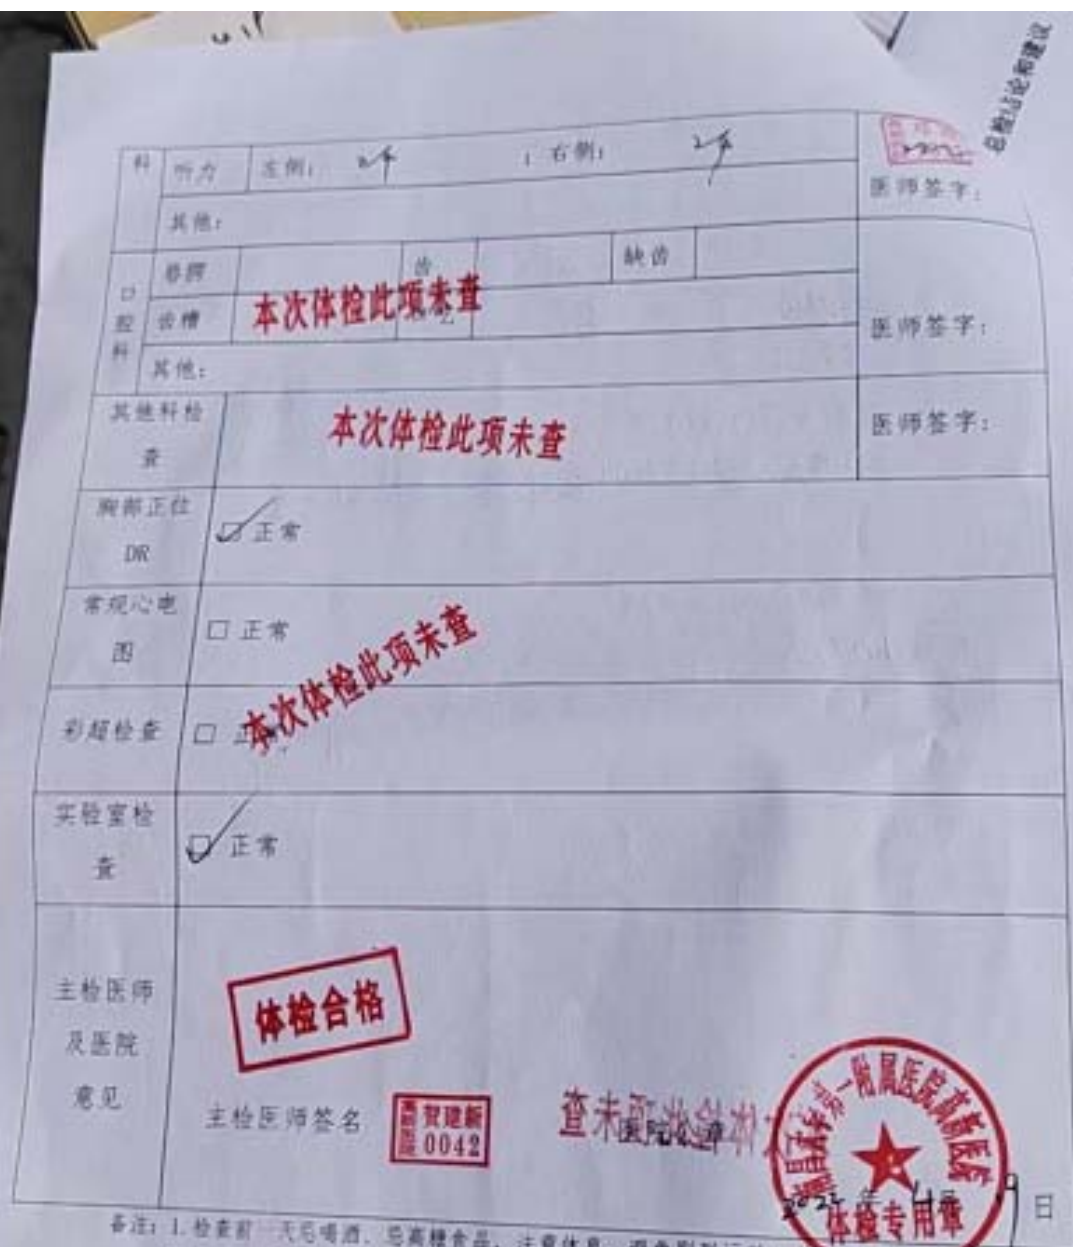 总检结论和建议
科 听力 左侧: 2年 ; 右侧: 2年
医师签字:
其他:
口腔科
唇腭 齿 缺齿
本次体检此项未查
齿槽
医师签字:
其他:
其他科检查 本次体检此项未查 医师签字:
胸部正位DR □ 正常
常规心电图 □ 正常
本次体检此项未查
彩超检查 □ 正
实验室检查 □ 正常
主检医师及医院意见
体检合格
主检医师签名 高新医院 贺建新 0042
查未项此检体
南昌 第一附属医院高新医院
体检专用章
年 日
备注: 1.检查前一天忌喝酒、忌高糖食品,注意休息,避免剧烈运动